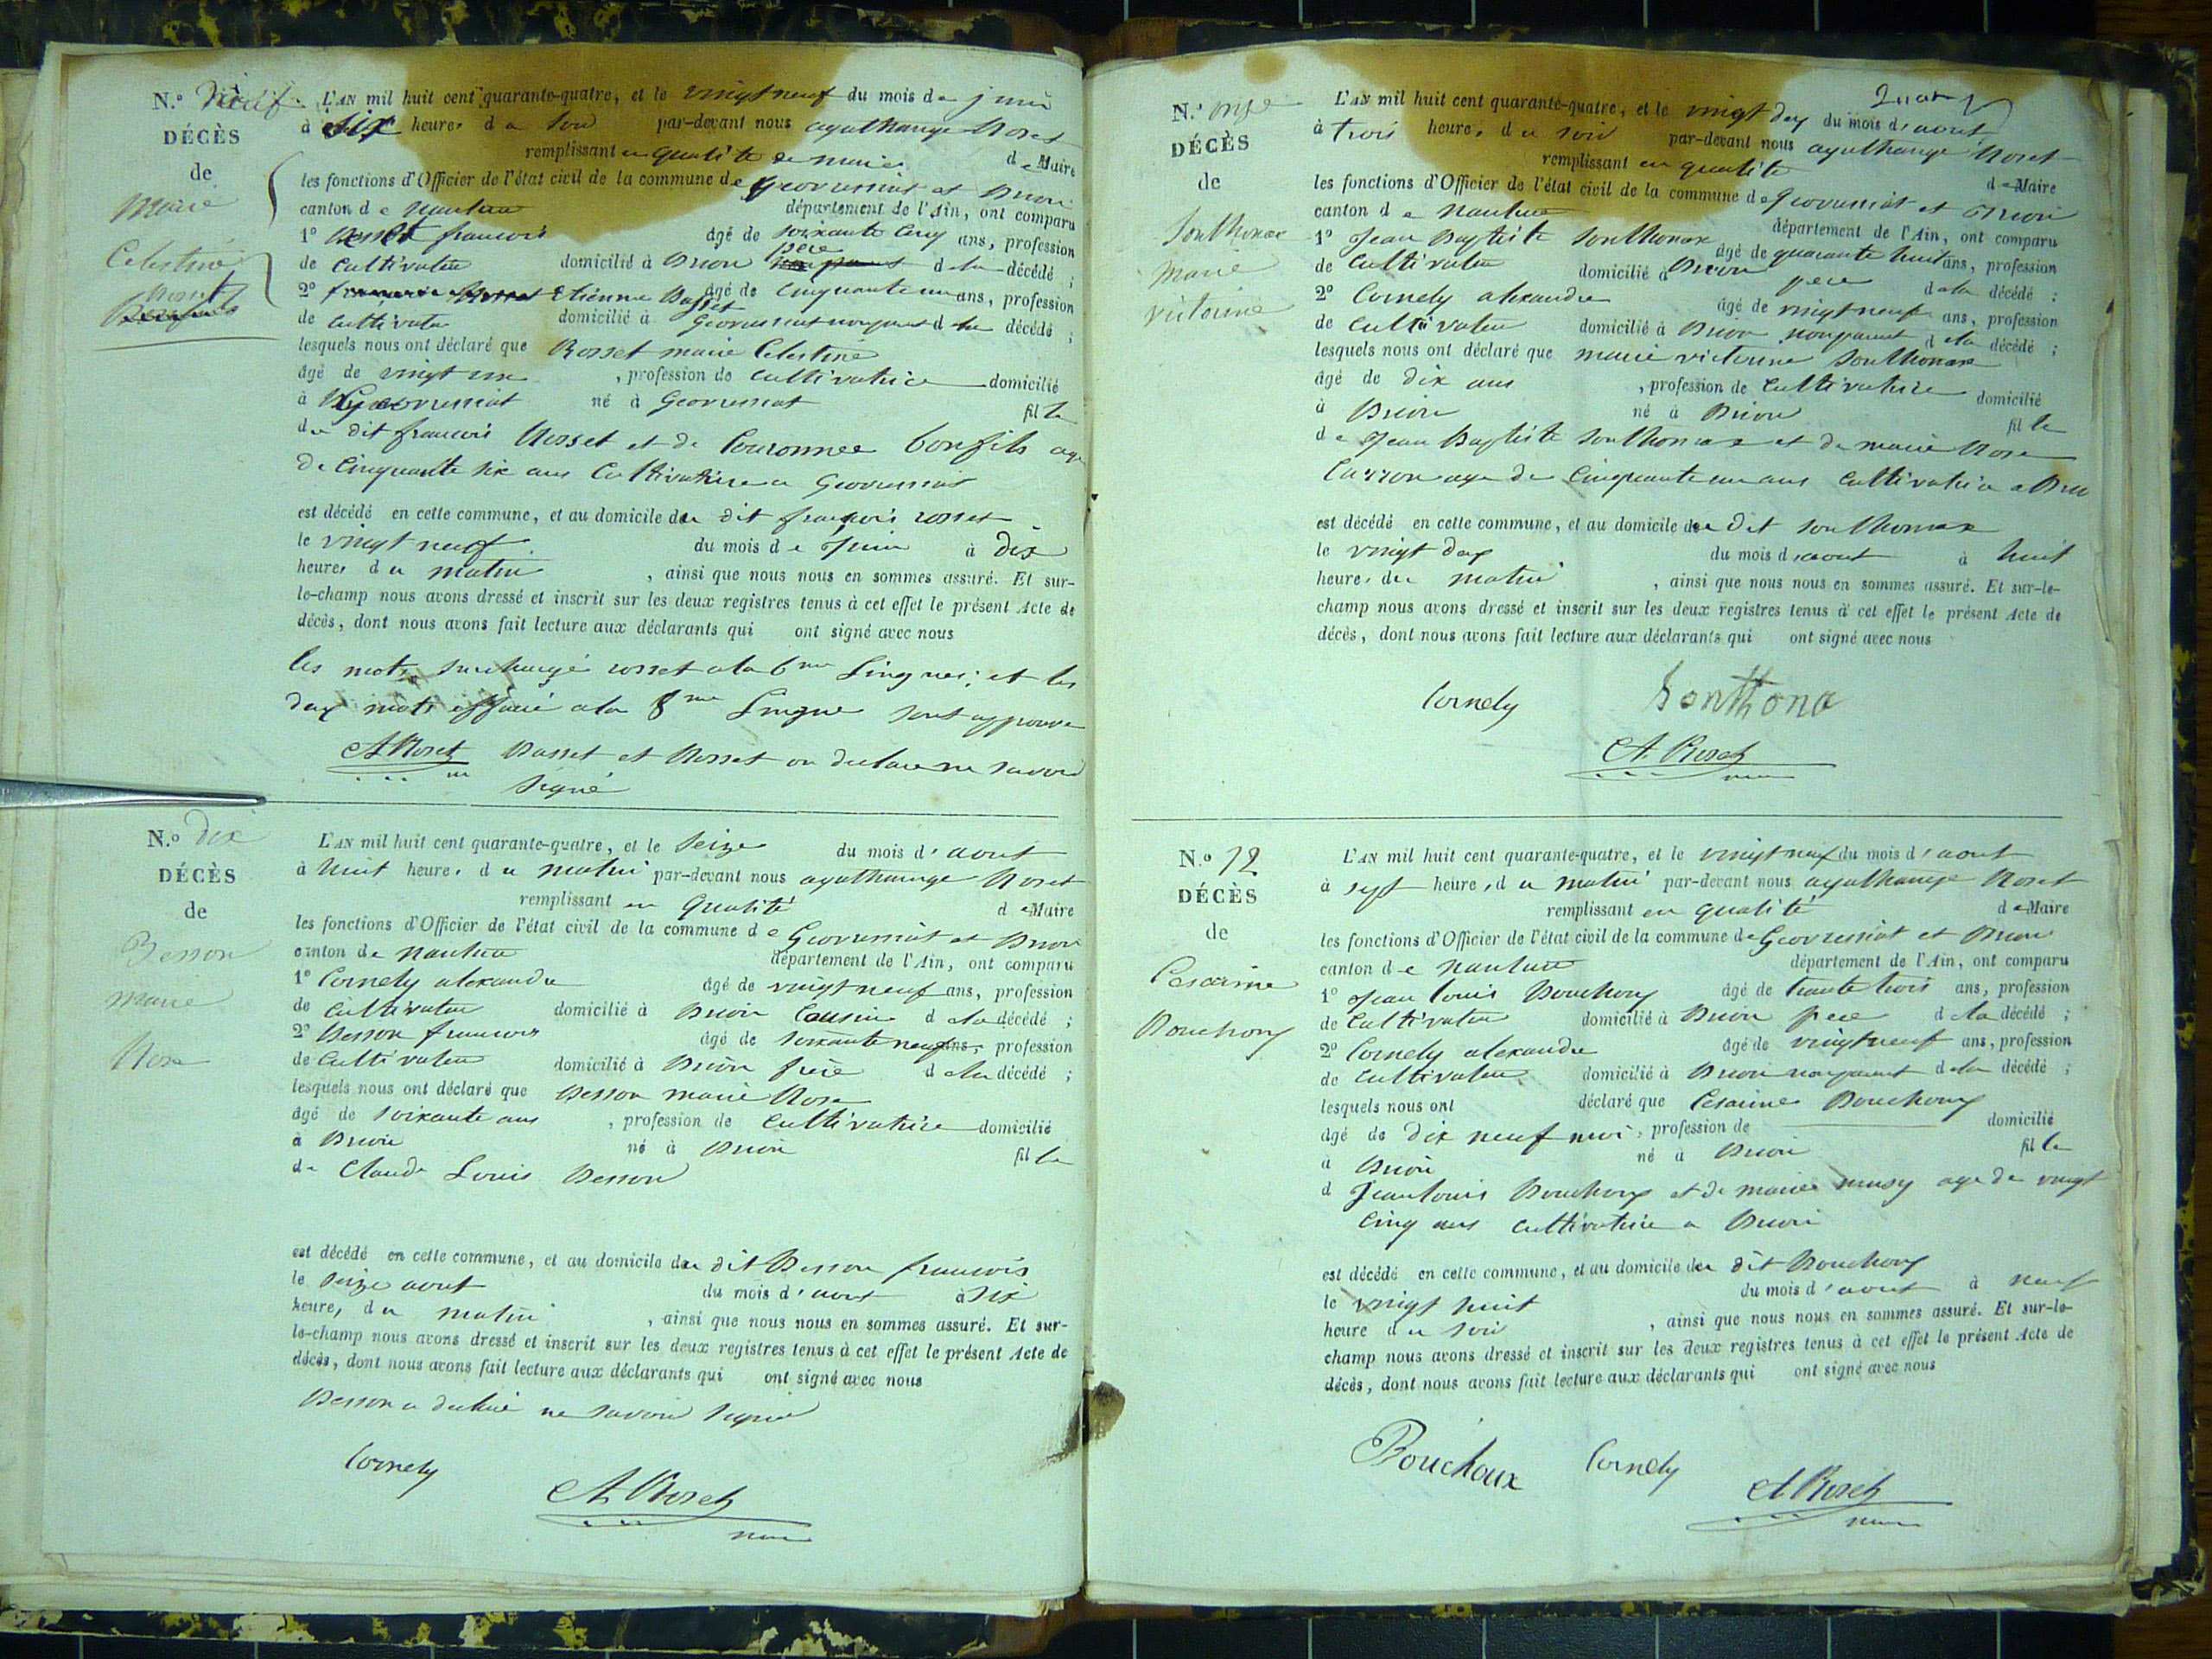 N.o neuf.
DÉCÈS
de
Marie
Celestine
Rosset
L'AN mil huit cent quarante-quatre, et le vingt neuf du mois de juin
à six heures du soir par-devant nous agathange Roset
remplissant en qualité de maire de Maire
les fonctions d'Officier de l'état civil de la commune de Geovressiat et Brion
canton de nantua département de l'Ain, ont comparu
1° Rosset francois âgé de soixante cinq ans, profession
de Cultivateur domicilié à Brion pere de la décédé ;
2° Etienne Basset âgé de Cinquante un ans, profession
de Cultivateur domicilié à Geovressiat non parent de la décédé ;
lesquels nous ont déclaré que Rosset marie Celestine
âgé de vingt un , profession de Cultivatrice domicilié
à Geovressiat né à Geovressiat fille
du dit francois Rosset et de Couronnee bonfils age
de Cinquante six ans Cultivatrice a Geovressiat
est décédé en cette commune, et au domicile du dit françois rosset
le vingt neuf du mois de Juin à dix
heures du matin , ainsi que nous nous en sommes assuré. Et sur-
le-champ nous avons dressé et inscrit sur les deux registres tenus à cet effet le présent Acte de
décès, dont nous avons fait lecture aux déclarants qui ont signé avec nous
les mots surchargé rosset a la 6me Lingnes; et les
deux mots effacé a la 8me Lingne sont approuve
A. Roset Basset et Rosset on declare ne savoir
signé
N.o Dix
DÉCÈS
de
Besson
marie
Rose
L'AN mil huit cent quarante-quatre, et le Seize du mois d'aout
à huit heures du matin par-devant nous agathange Roset
remplissant en Qualité de Maire
les fonctions d'Officier de l'état civil de la commune de Geovressiat et Brion
canton de nantua département de l'Ain, ont comparu
1° Cornely alexandre âgé de vingt neuf ans, profession
de Cultivateur domicilié à Brion Cousin de la décédé ;
2° Besson francois âgé de soixante neuf ans, profession
de Cultivateur domicilié à Brion frere de la décédé ;
lesquels nous ont déclaré que Besson marie Rose
âgé de soixante ans , profession de Cultivatrice domicilié
à Brion né à Brion fille
de Claude Louis Besson
est décédé en cette commune, et au domicile du dit Besson francois
le seize aout du mois d'aout à six
heures du matin , ainsi que nous nous en sommes assuré. Et sur-
le-champ nous avons dressé et inscrit sur les deux registres tenus à cet effet le présent Acte de
décès, dont nous avons fait lecture aux déclarants qui ont signé avec nous
Besson a declaré ne savoir signé
Cornely
A. Roset
N.o onze
DÉCÈS
de
Sonthonax
Marie
victorine
L'AN mil huit cent quarante-quatre, et le vingt deux du mois d'aout
à trois heures du soir par-devant nous agathange Roset
remplissant en qualité de Maire
les fonctions d'Officier de l'état civil de la commune de Geovressiat et Brion
canton de nantua département de l'Ain, ont comparu
1° Jean Baptiste Sonthonax âgé de quarante huit ans, profession
de Cultivateur domicilié à Brion pere de la décédé ;
2° Cornely alexandre âgé de vingt neuf ans, profession
de Cultivateur domicilié à Brion non parent de la décédé ;
lesquels nous ont déclaré que marie victorine Sonthonax
âgé de dix ans , profession de Cultivatrice domicilié
à Brion né à Brion fille
de Jean Baptiste Sonthonax et de marie Rose
Carron age de Cinquante un ans Cultivatrice a Brio
est décédé en cette commune, et au domicile du dit Sonthonax
le vingt deux du mois d'aout à huit
heures du matin , ainsi que nous nous en sommes assuré. Et sur-le-
champ nous avons dressé et inscrit sur les deux registres tenus à cet effet le présent Acte de
décès, dont nous avons fait lecture aux déclarants qui ont signé avec nous
Cornely Sonthona
A. Roset
N.o 12
DÉCÈS
de
Cesarine
Bouchoux
L'AN mil huit cent quarante-quatre, et le vingt neuf du mois d'aout
à sept heures du matin par-devant nous agathange Roset
remplissant en qualité de Maire
les fonctions d'Officier de l'état civil de la commune de Geovressiat et Brion
canton de Nantua département de l'Ain, ont comparu
1° Jean Louis Bouchoux âgé de trante trois ans, profession
de Cultivateur domicilié à Brion pere de la décédé ;
2° Cornely alexandre âgé de vingt neuf ans, profession
de Cultivateur domicilié à Brion non parent de la décédé ;
lesquels nous ont déclaré que Cesarine Bouchoux
âgé de dix neuf moi , profession de domicilié
à Brion né à Brion fille
d Jean louis Bouchoux et de marie musy age de vingt
Cinq ans Cultivatrice a Brion
est décédé en cette commune, et au domicile du dit Bouchoux
le vingt huit du mois d'aout à neuf
heure du soir , ainsi que nous nous en sommes assuré. Et sur-le-
champ nous avons dressé et inscrit sur les deux registres tenus à cet effet le présent Acte de
décès, dont nous avons fait lecture aux déclarants qui ont signé avec nous
Bouchoux Cornely
A Roset